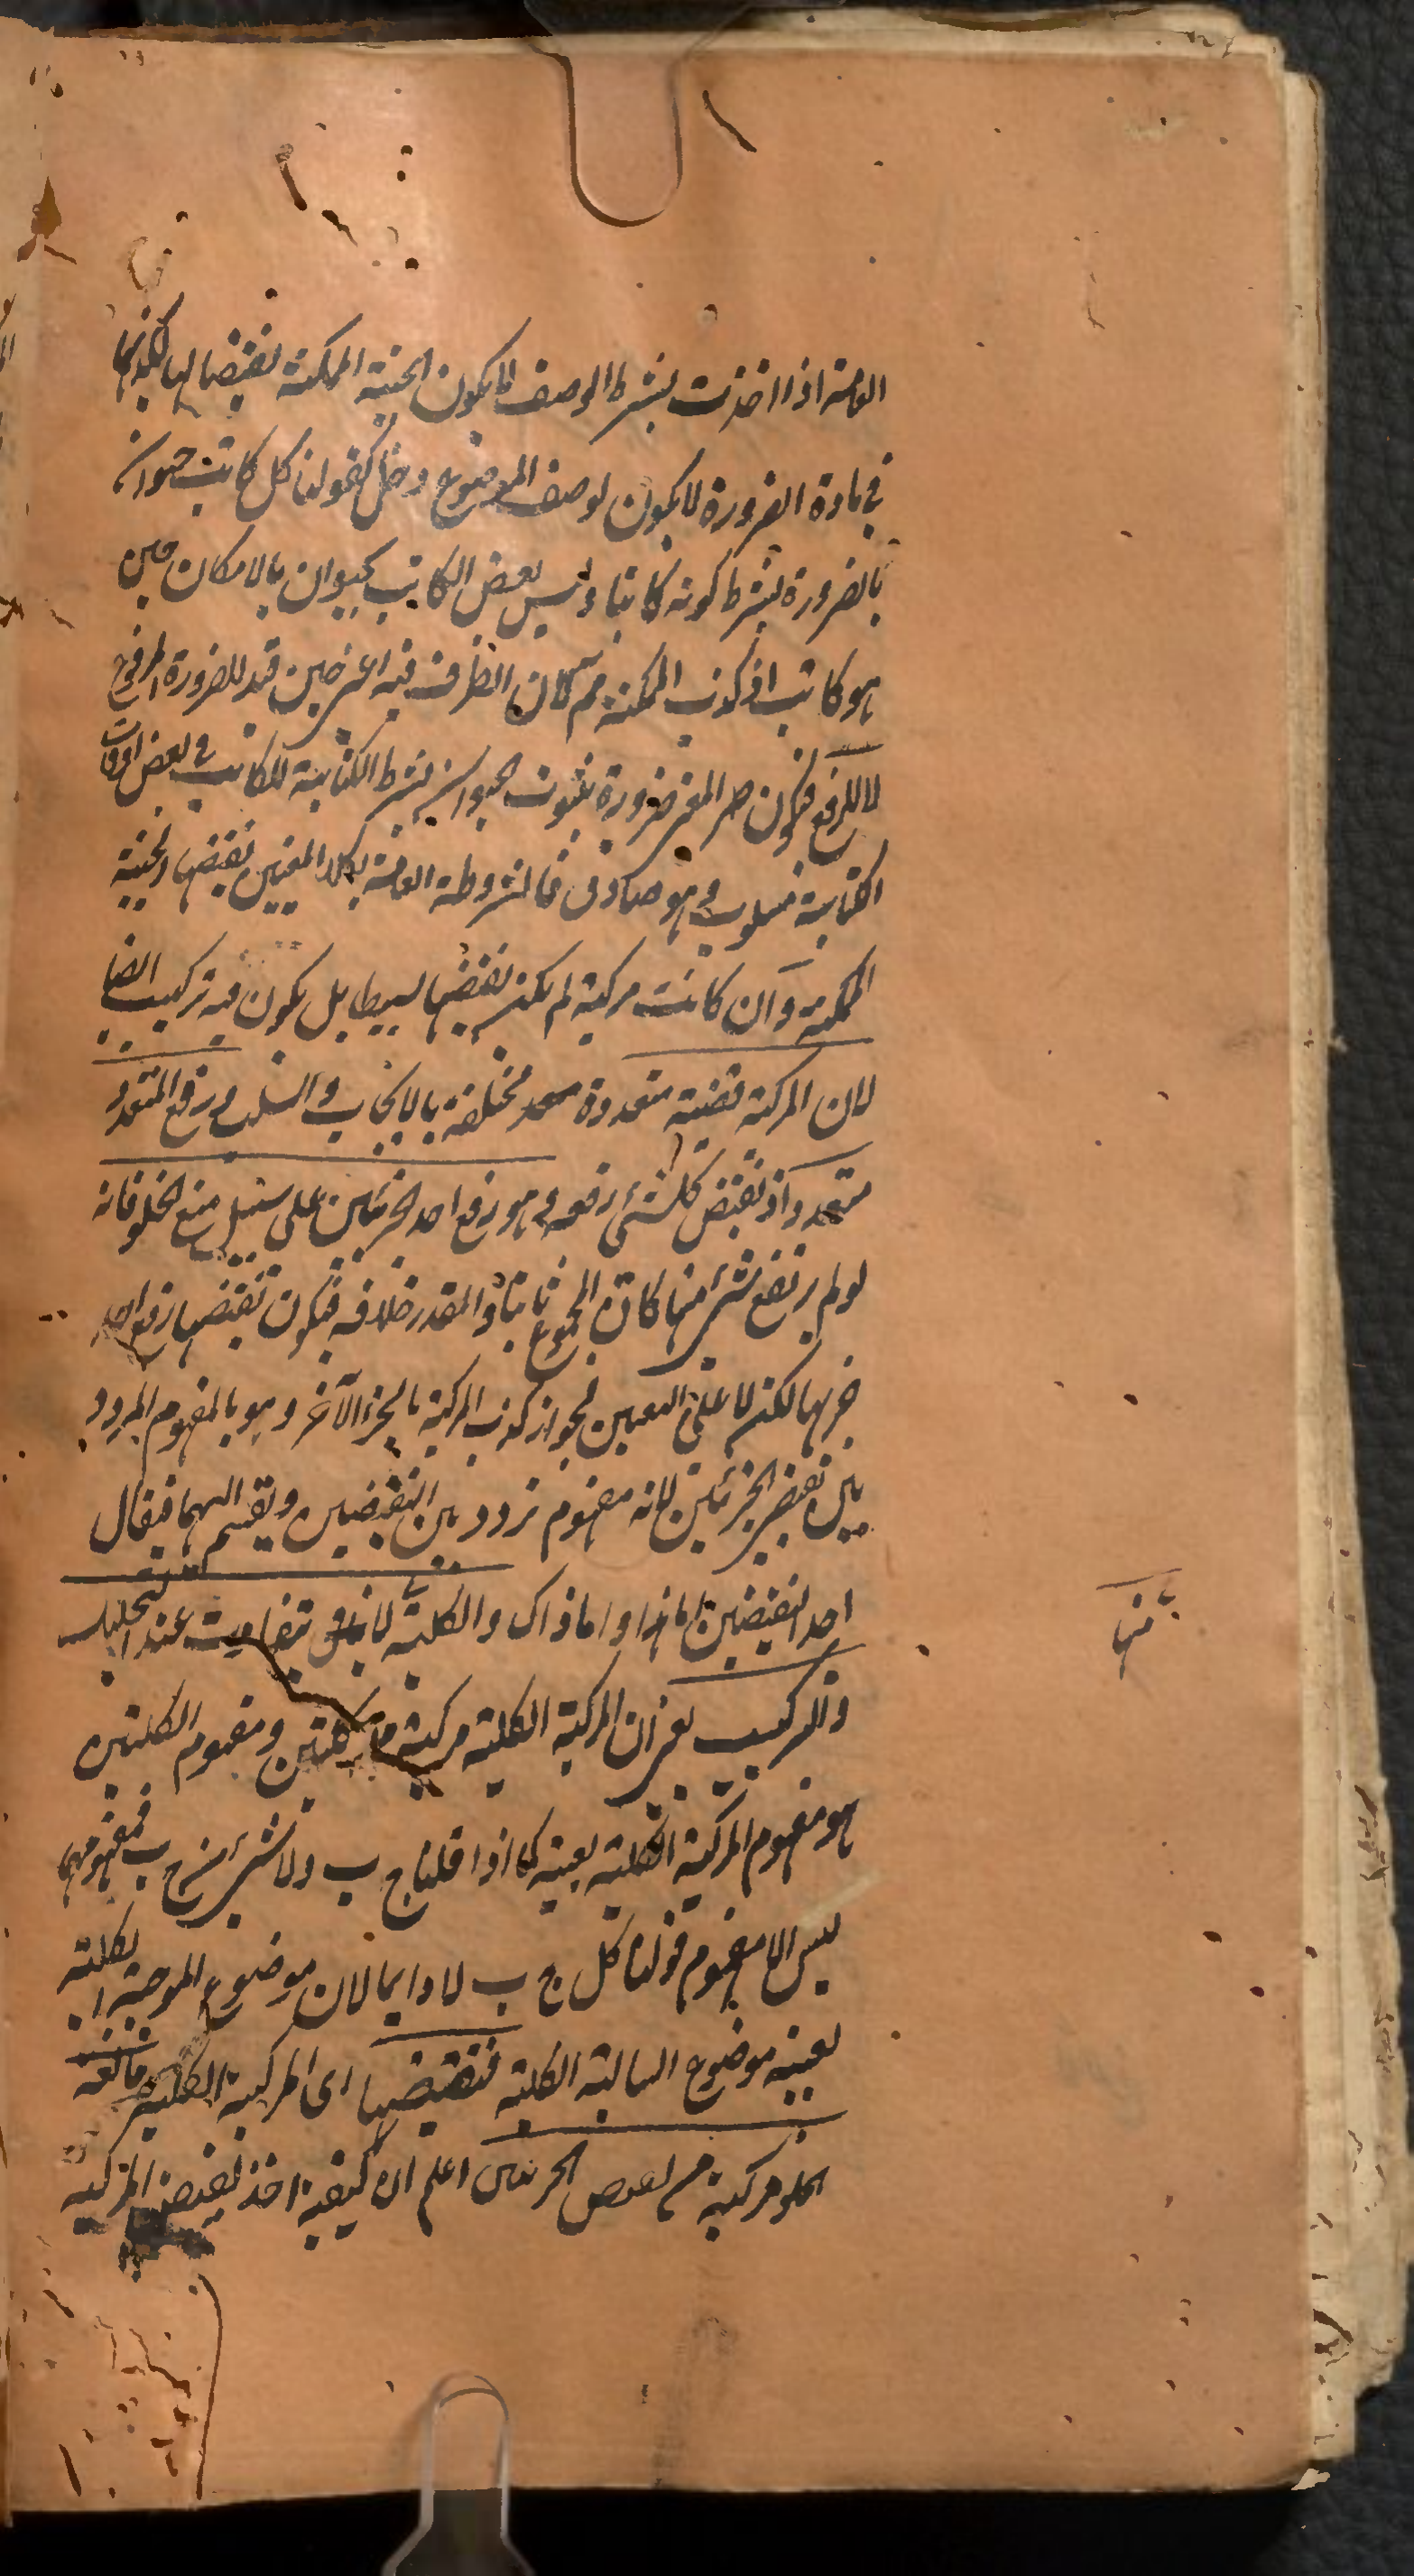 العامة اذا اخذت بشرط الوصف لا يكون الحينية الممكنة نقيضا لها لكذبهما
في مادة الضرورة لا يكون لوصف الموضوع دخل كقولنا كل كاتب حيوان
بالضرورة بشرط كونه كاتبا وليس بعض الكاتب بحيوان بالامكان حين
هو كاتب اذ كذب الممكنة مم كان الظرف فيه اعنى حين قيد للضرورة المرفوع
لا للرفع فيكون المعنى ضرورة ثبوت الحيوان بشرط الكتابة للكاتب فى بعض اوقات
الكتابة مسلوب وهو صادق فالمشروطة العامة بكلا المعنيين نقيضها الحينية
الممكنة وان كانت مركبة لم يكن نقيضها بسيطا بل يكون فيه تركيب ايضا
لان المركبة قضية متعددة مختلفة بالايجاب والسلب ورفع المتعدد
متعدد اذ نقيض كل شئ رفعه وهو رفع احد الجزئين على سبيل منع الخلو فانه
لو لم يرتفع شئ منها كان المجموع ثابتا والمقدر خلافه فيكون نقيضها رفع احد
جزئها لكن لا على التعيين لجواز كذب المركبة بالجزء الآخر وهو بالمفهوم المردد
بين نقيضى الجزئين لانه مفهوم تردد بين النقيضين ويقسم اليهما فيقال
احد النقيضين اما هذا واما ذاك والكلية لا تتفاوت عند التحليل
منها
والتركيب يعنى ان المركبة الكلية مركبة من كليتين ومفهوم الكليتين
هو مفهوم المركبة الكلية بعينه كما اذا قلنا ج ب ولا شئ من ج ب فمفهومهما
ليس الا مفهوم قولنا كل ج ب لا دايما لان موضوع الموجبة الكلية
بعينه موضوع السالبة الكلية فنقيضها اى المركبة الكلية مانعة
الخلو مركبة من نقيض الجزئين اعلم ان كيفية اخذ نقيض المركبة